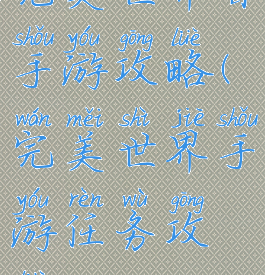 shǒu yóu gōng lüè
手游攻略(
wán měi shì jiè shǒu
完美世界手
yóu rèn wù gōng
游任务攻